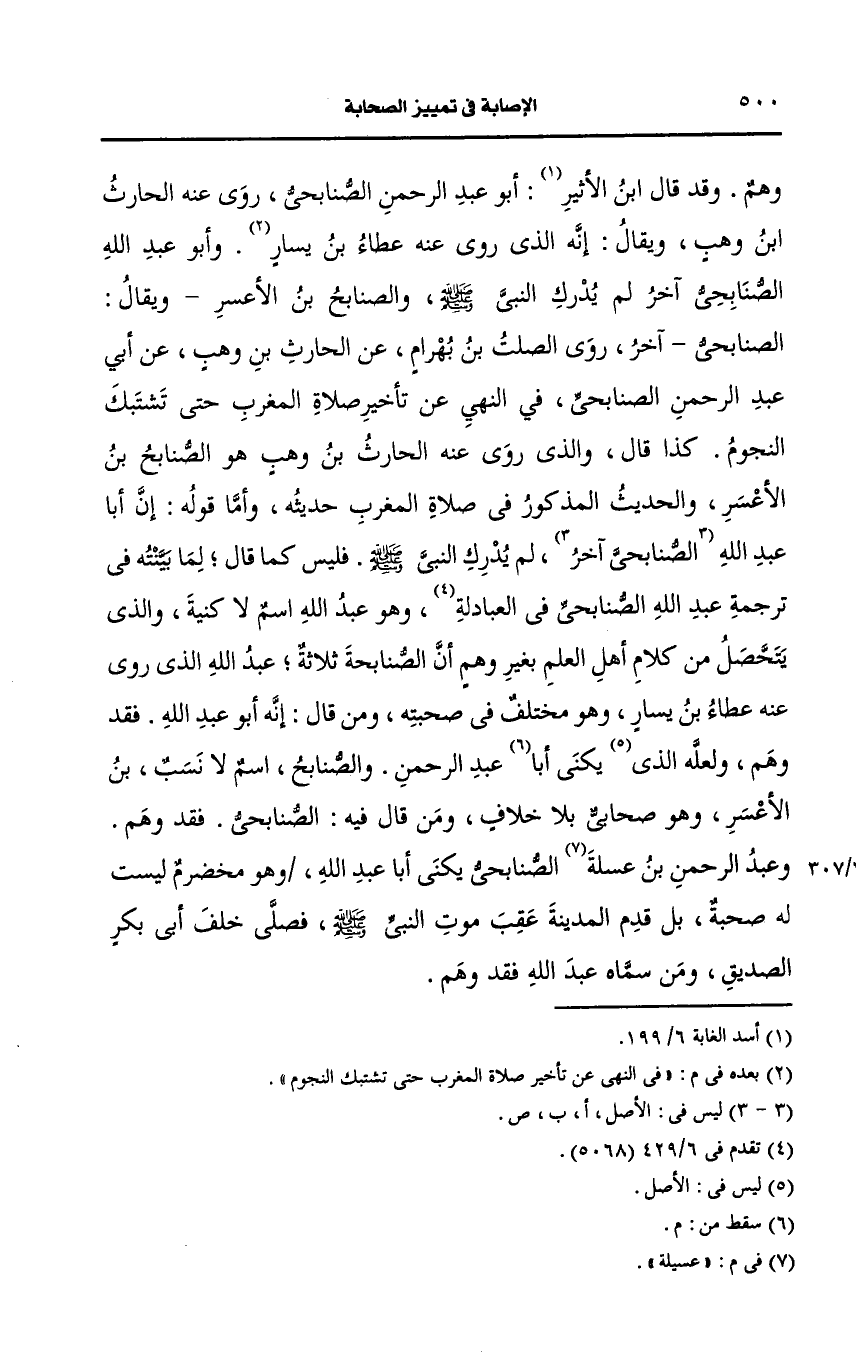 ٥٠٠ الإصابة فى تمييز الصحابة
وهمٌ . وقد قال ابنُ الأثيرِ(١) : أبو عبدِ الرحمنِ الصُّنابحىُّ ، روَى عنه الحارثُ
ابنُ وهبٍ ، ويقالُ : إنَّه الذى روى عنه عطاءُ بنُ يسارٍ(٢) . وأبو عبدِ اللهِ
الصُّنَابِحِىُّ آخرُ لم يُدْركِ النبىَّ ﷺ ، والصنابحُ بنُ الأعسرِ - ويقالُ :
الصنابحىُّ - آخرُ ، روَى الصلتُ بنُ بُهْرامٍ ، عن الحارثِ بنِ وهبٍ ، عن أبي
عبدِ الرحمنِ الصنابحىِّ ، في النهيِ عن تأخيرِ صلاةِ المغربِ حتى تَشتَبكَ
النجومُ . كذا قال ، والذى روَى عنه الحارثُ بنُ وهبٍ هو الصُّنابحُ بنُ
الأعْسَرِ ، والحديثُ المذكورُ فى صلاةِ المغربِ حديثُه ، وأمَّا قولُه : إنَّ أبا
عبدِ اللهِ (٣الصُّنابحىَّ آخرُ٣) ، لم يُدْرِكِ النبىَّ ﷺ . فليس كما قال ؛ لِمَا بَيَّنْتُه فى
ترجمةِ عبدِ اللهِ الصُّنابحىِّ فى العبادلةِ(٤) ، وهو عبدُ اللهِ اسمٌ لا كنيةَ ، والذى
يَتَحَّصَلُ من كلامِ أهلِ العلمِ بغيرِ وهمٍ أنَّ الصُّنابحةَ ثلاثةٌ ؛ عبدُ اللهِ الذى روى
عنه عطاءُ بنُ يسارٍ ، وهو مختلفٌ فى صحبتِه ، ومن قال : إنَّه أبو عبدِ اللهِ . فقد
وهَم ، ولعلَّه الذى(٥) يكنَى أبا(٦) عبدِ الرحمنِ . والصُّنابحُ ، اسمٌ لا نَسَبٌ ، بنُ
الأعْسَرِ ، وهو صحابىٌّ بلا خلافٍ ، ومَن قال فيه : الصُّنابحىُّ . فقد وهَم .
وعبدُ الرحمنِ بنُ عسلةَ(٧) الصُّنابحىُّ يكنَى أبا عبدِ اللهِ ، /وهو مخضرمٌ ليست ٣٠٧/
له صحبةٌ ، بل قدِم المدينةَ عَقِبَ موتِ النبىِّ ﷺ ، فصلَّى خلفَ أبى بكرٍ
الصديقِ ، ومَن سمَّاه عبدَ اللهِ فقد وهَم .
(١) أسد الغابة ٦/ ١٩٩.
(٢) بعده فى م : «فى النهى عن تأخير صلاة المغرب حتى تشتبك النجوم» .
(٣ - ٣) ليس فى : الأصل ، أ ، ب ، ص .
(٤) تقدم فى ٤٢٩/٦ (٥٠٦٨) .
(٥) ليس فى : الأصل .
(٦) سقط من : م .
(٧) فى م : «عسيلة» .